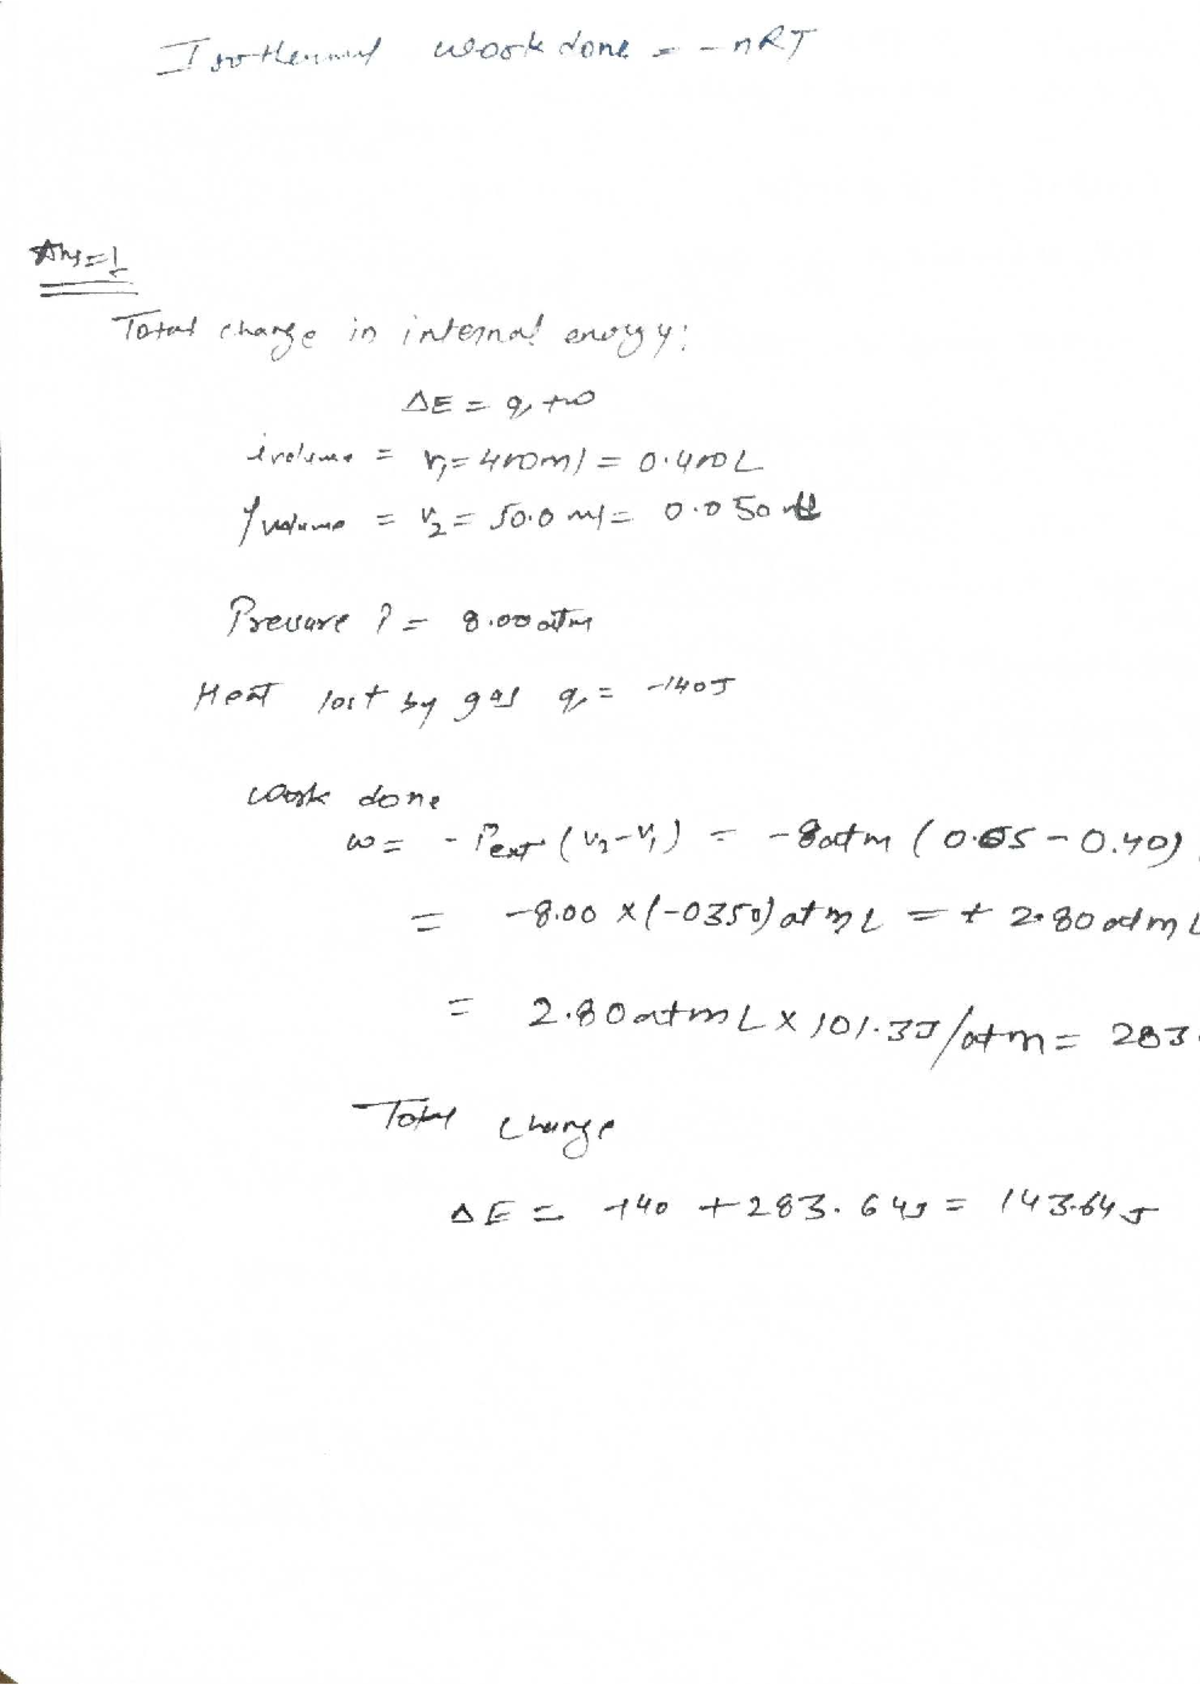 Isothermal work done = - nRT
Ans=1
Total change in internal energy:
ΔE = q + w
i volume = V₁ = 400ml = 0.400 L
f volume = V₂ = 50.0 ml = 0.050
Pressure P = 8.00 atm
Heat lost by gas q = -140J
Work done
w = - Pext (V₂-V₁) = -8atm (0.05 - 0.40)
= -8.00 x (-0350) atm L = + 2.80 atm L
= 2.80 atm L x 101.3J/atm = 283.
Total change
ΔE = -140 + 283.64J = 143.64J